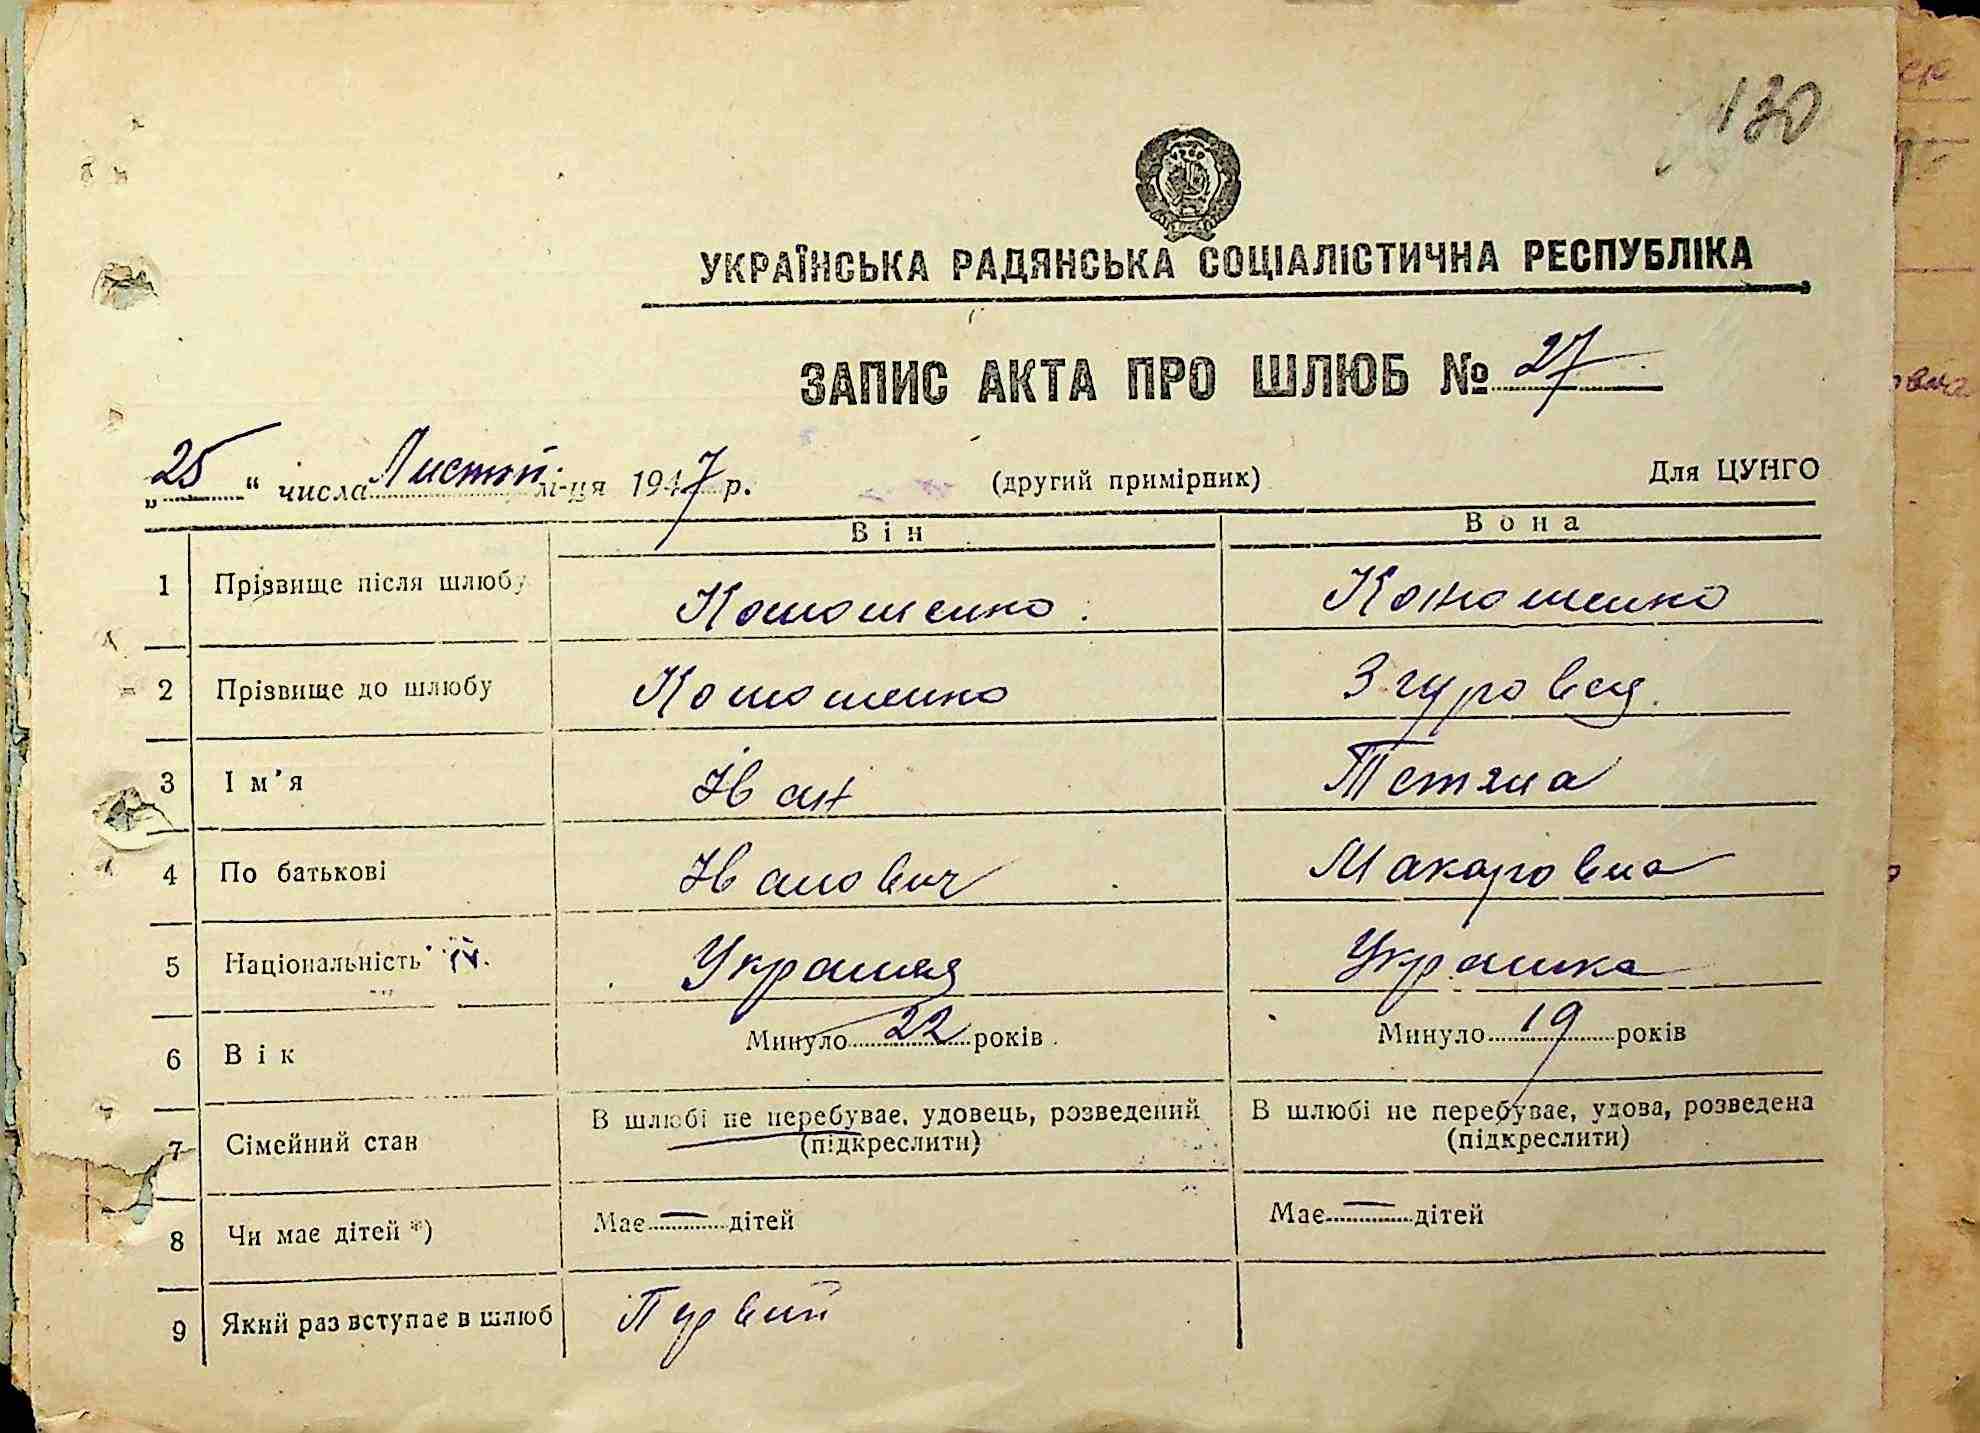 130
УКРАЇНСЬКА РАДЯНСЬКА СОЦІАЛІСТИЧНА РЕСПУБЛІКА
ЗАПИС АКТА ПРО ШЛЮБ № 27
„25“ числа Листоп. м-ця 1947 р. (другий примірник) Для ЦУНГО
Він Вона
1 Прізвище після шлюбу Коношенко Коношенко
2 Прізвище до шлюбу Коношенко Згуровец
3 Ім'я Іван Тетяна
4 По батькові Іванович Макаровна
5 Національність Українец Украинка
6 Вік Минуло 22 років Минуло 19 років
7 Сімейний стан В шлюбі не перебуває, удовець, розведений В шлюбі не перебуває, удова, розведена
(підкреслити) (підкреслити)
8 Чи має дітей *) Має — дітей Має — дітей
9 Який раз вступає в шлюб Первий